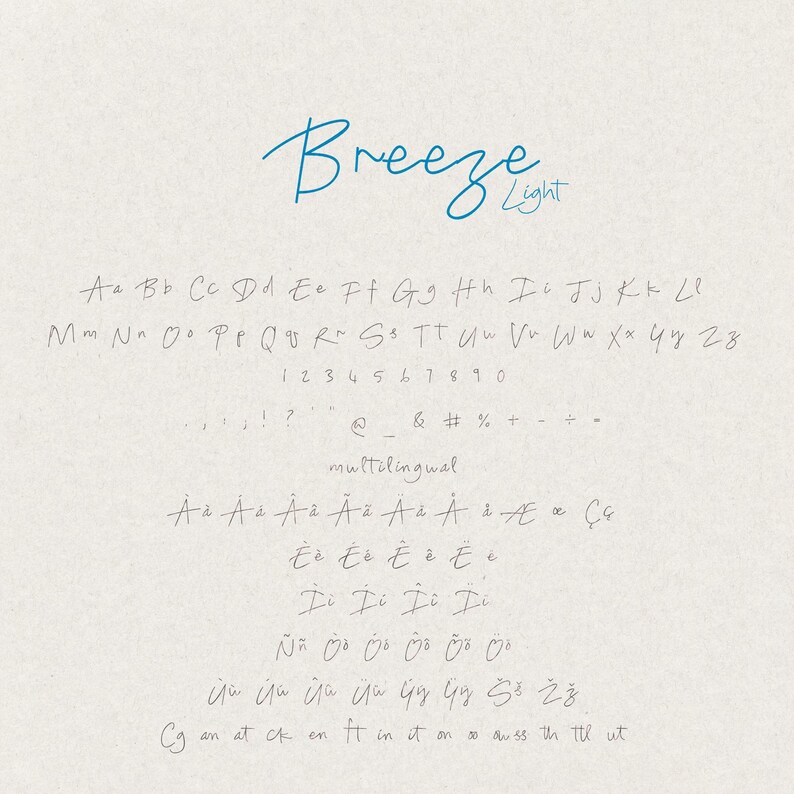 Breeze
Light
Aa Bb Cc Dd Ee Ff Gg Hh Ii Jj Kk Ll
Mm Nn Oo Pp Qq Rr Ss Tt Uu Vv Ww Xx Yy Zz
1 2 3 4 5 6 7 8 9 0
. , : ; ! ? ' " @ _ & # % + - ÷ =
multilingual
Àà Áá Ââ Ãã Ää Å å Æ æ Çç
Èè Éé Ê ê Ë ë
Ìì Íí Îî Ïï
Ññ Òò Óó Ôô Õõ Öö
Ùù Úú Ûû Üü Ýý Ÿÿ Šš Žž
Cg an at ck en ft in it on oo ow ss th ttl ut